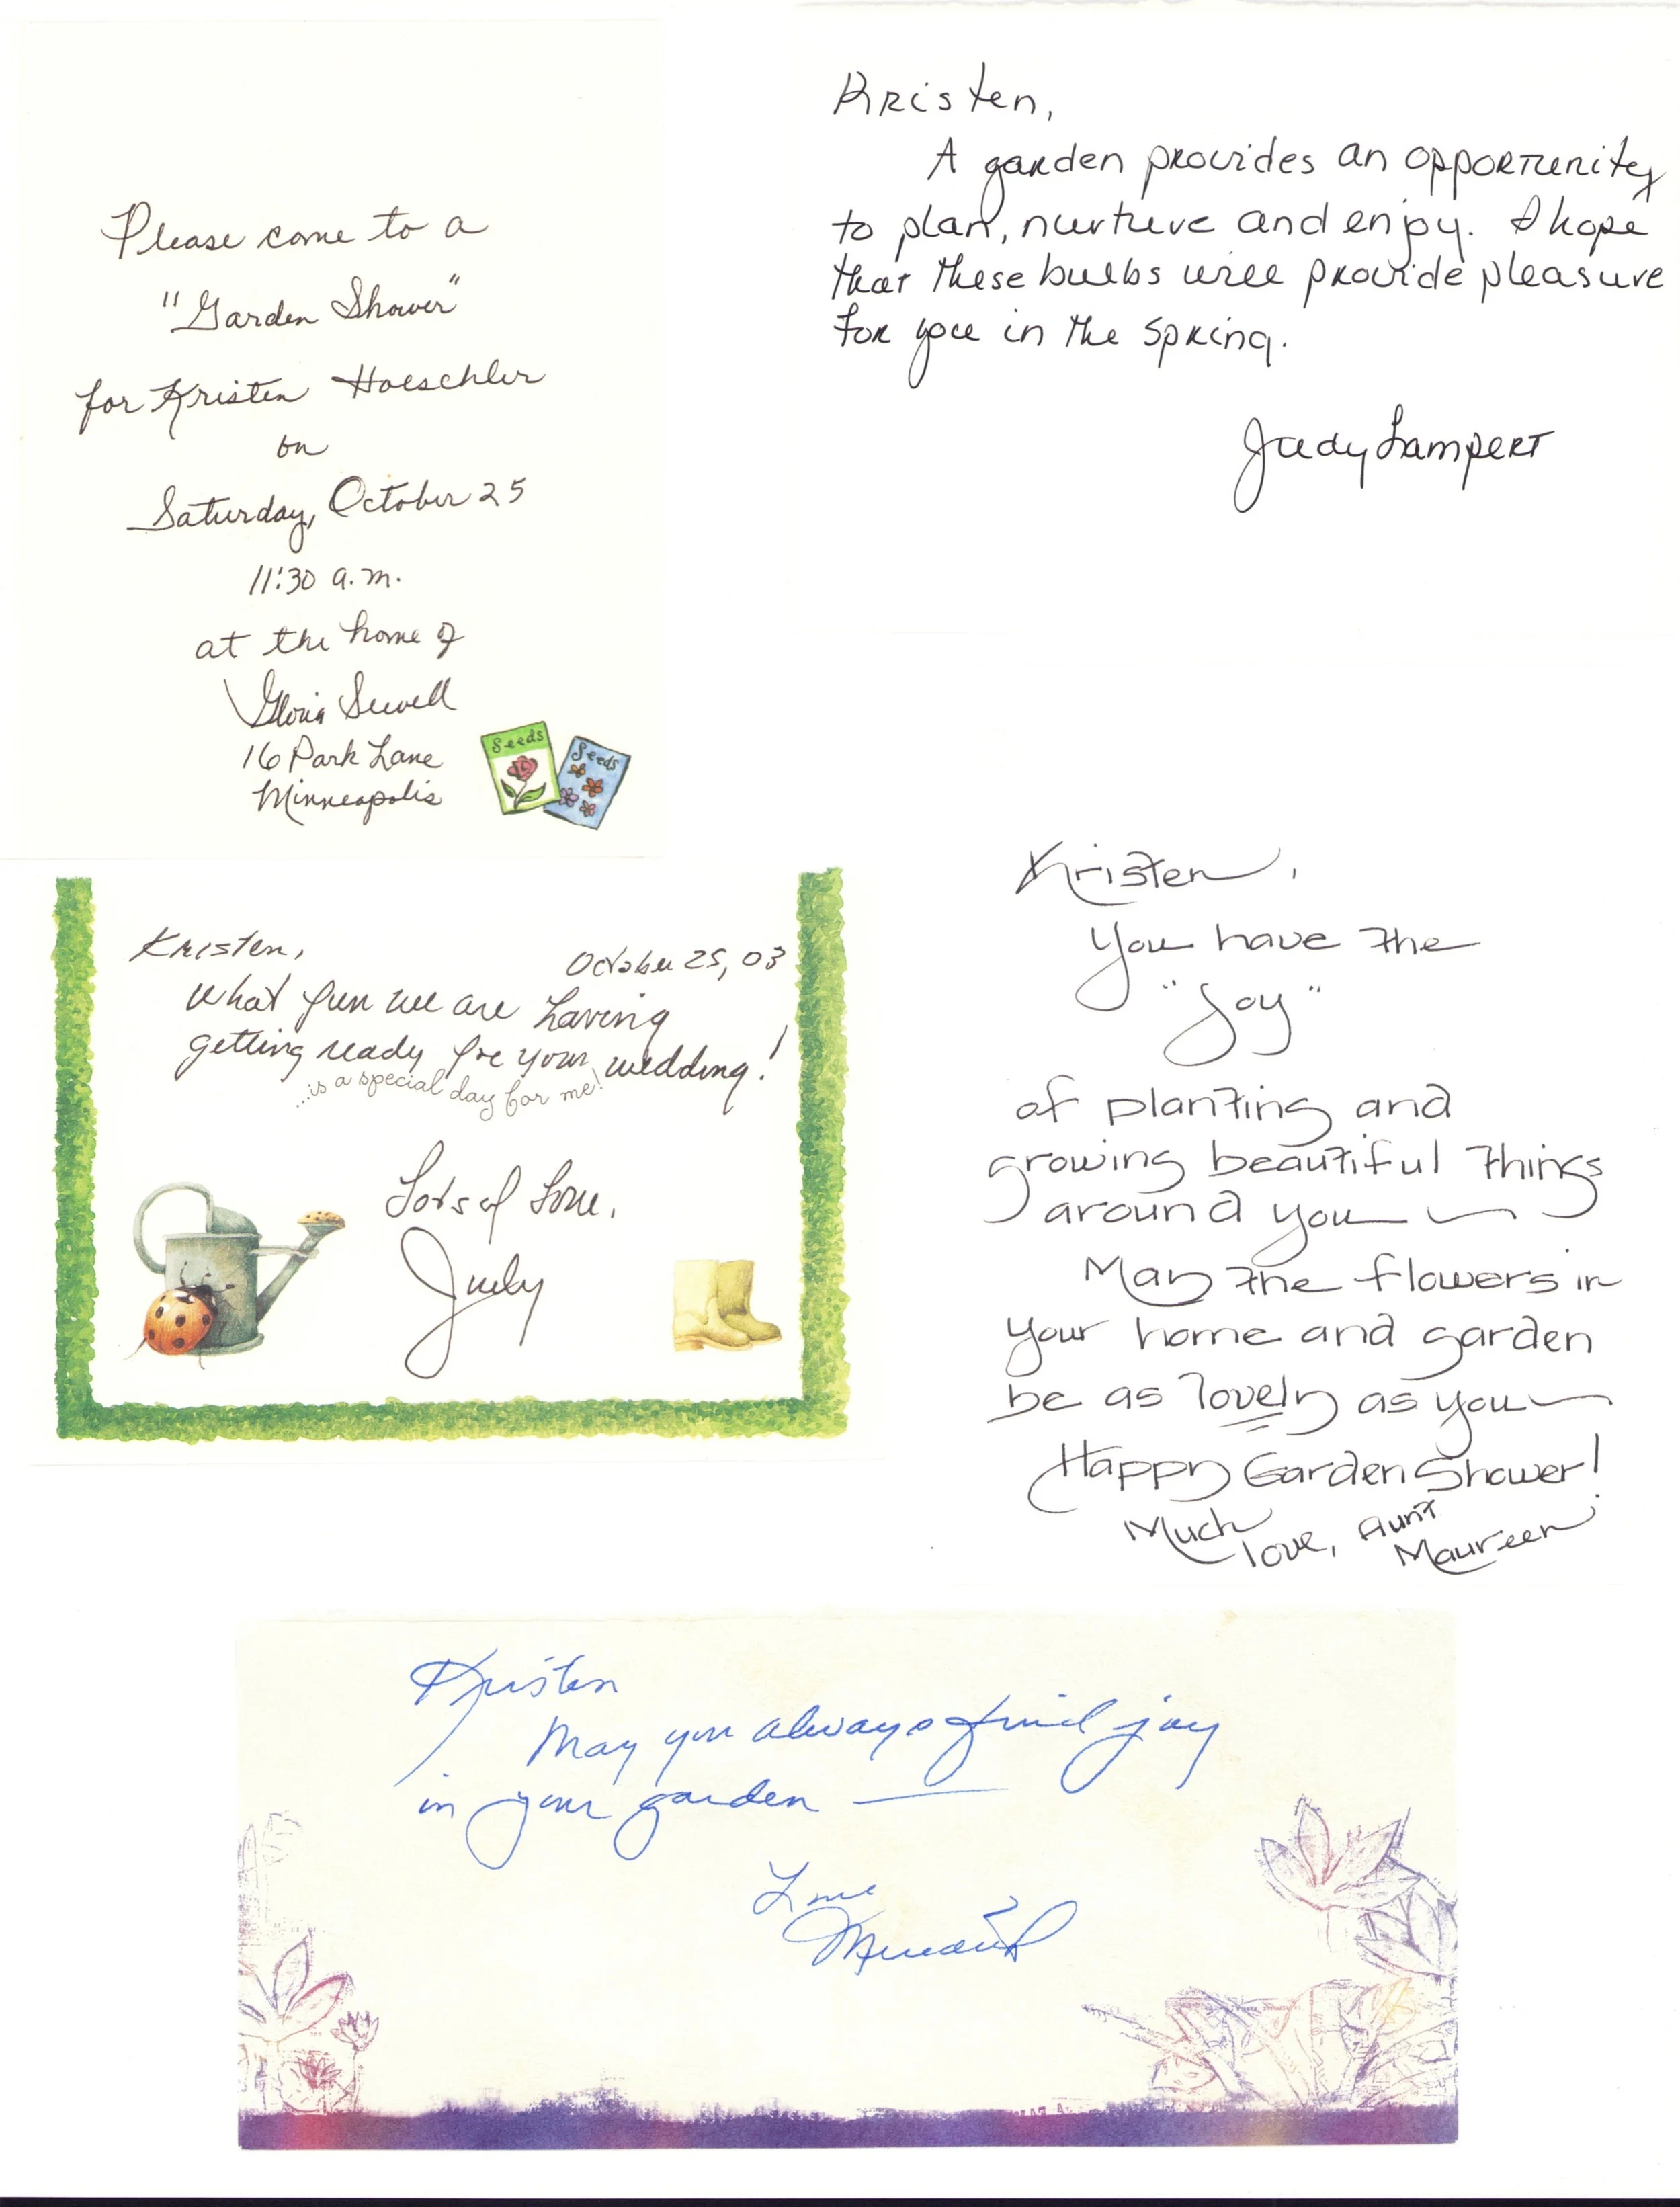 Please come to a
"Garden Shower"
for Kristen Hoeschler
on
Saturday, October 25
11:30 a.m.
at the home of
Gloria Sewell
16 Park Lane
Minneapolis
Seeds
Seeds
Kristen,
A garden provides an opportunity
to plan, nurture and enjoy. I hope
that these bulbs will provide pleasure
for you in the spring.
Judy Lampert
Kristen,
October 25, 03
What fun we are having
getting ready for your wedding!
...is a special day for me!
Lots of Love,
Judy
Kristen,
You have the
"Joy"
of planting and
growing beautiful things
around you —
May the flowers in
your home and garden
be as lovely as you —
Happy Garden Shower!
Much
love, Aunt
Maureen
Kristen
May you always find joy
in your garden —
Love